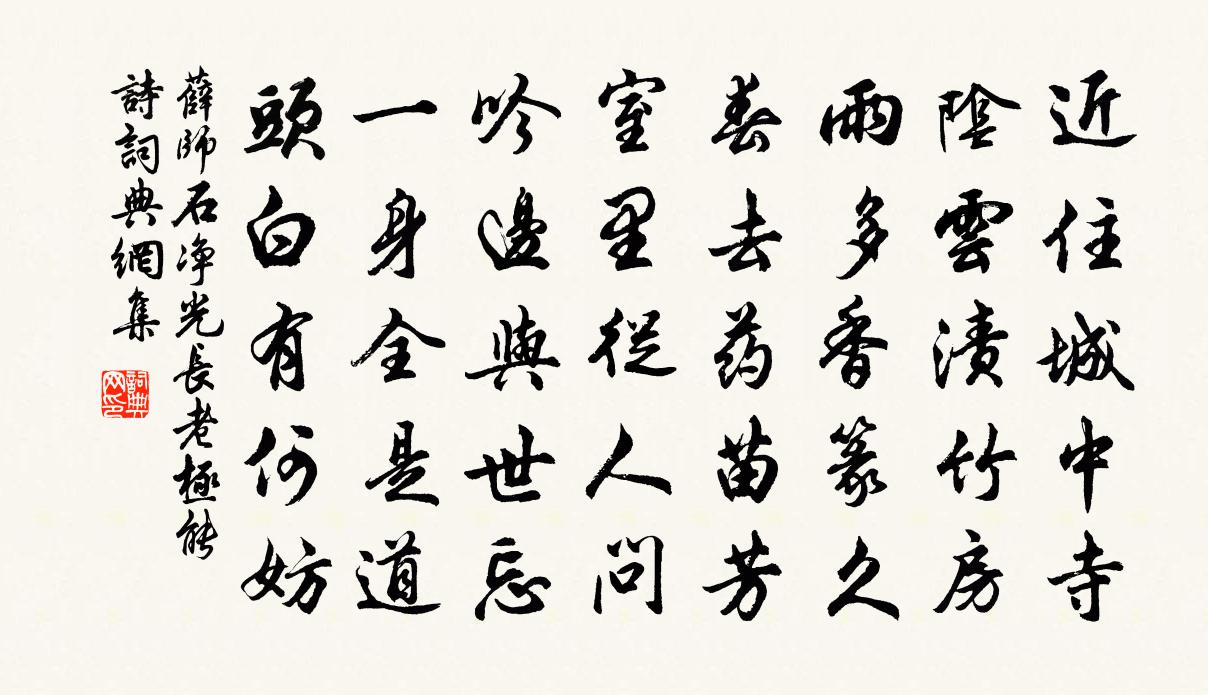 近住城中寺
陰雲漬竹房
雨多香篆久
春去药苗芳
室里從人問
吟邊與世忘
一身全是道
頭白有何妨
薛師石净光長老極能
詩詞典網集
詞典
网印